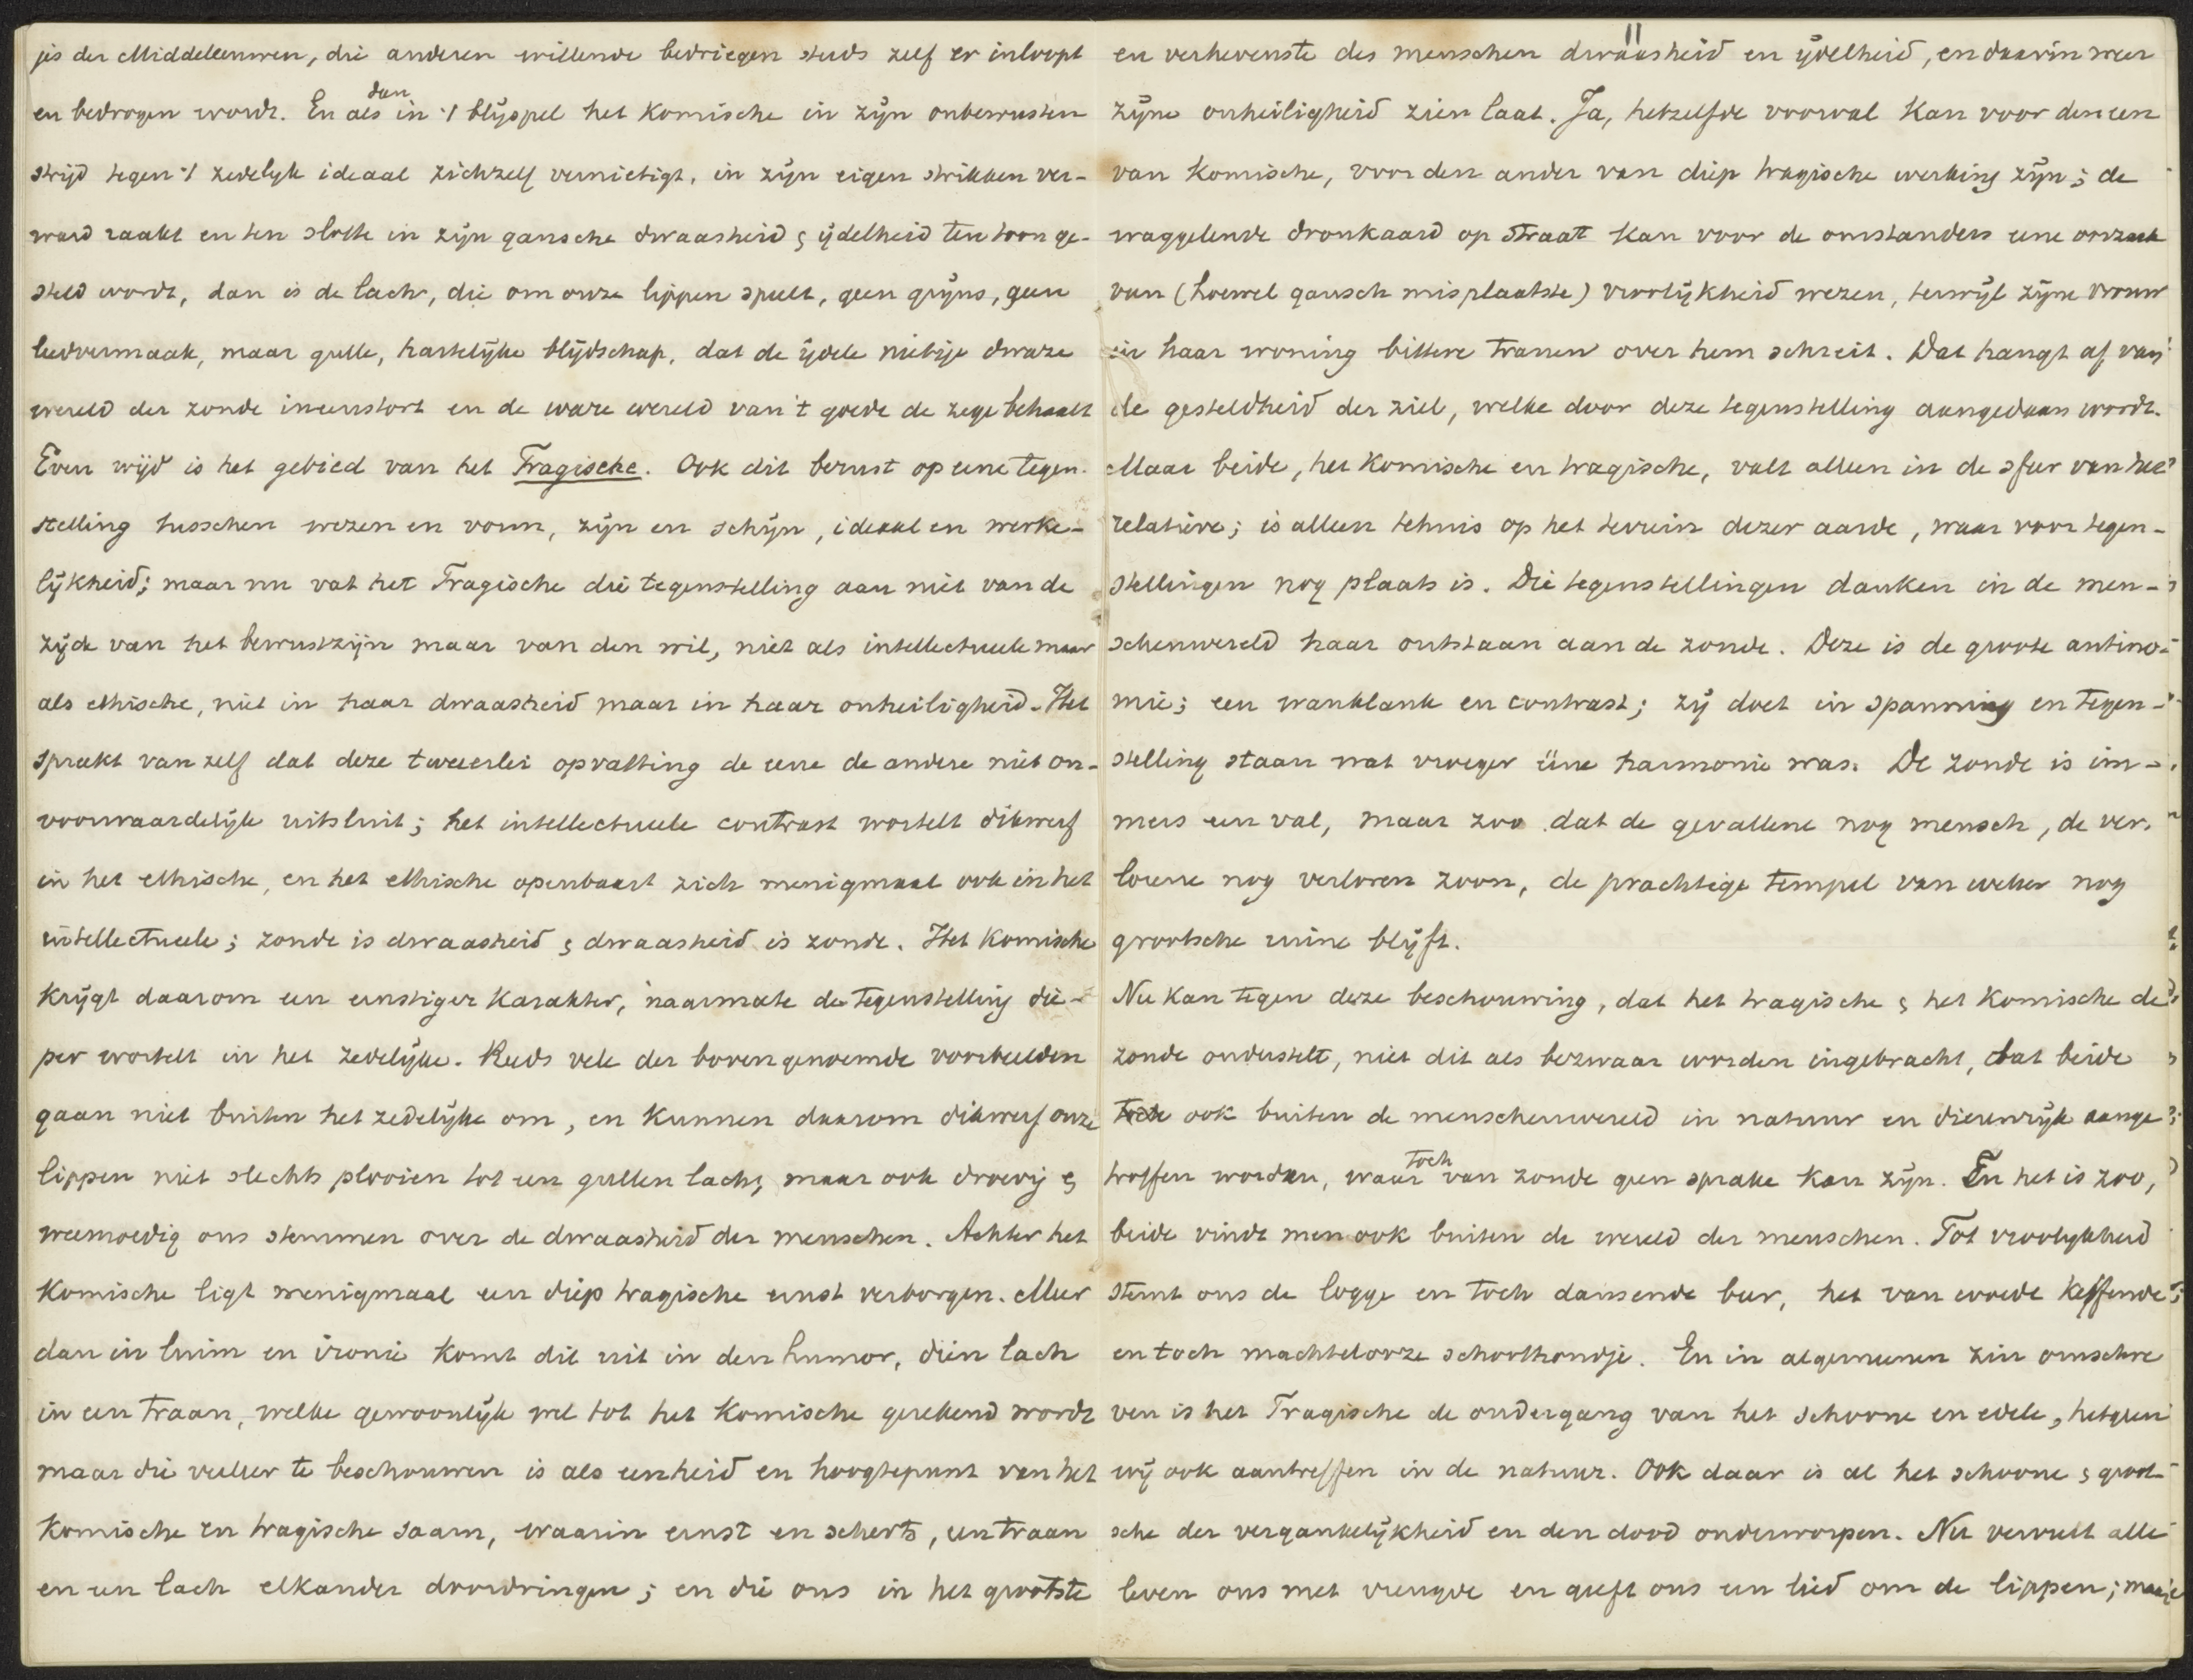 jes der Middeleeuwen, die anderen willende bedriegen steeds zelf er inloopt
en bedrogen wordt. En als dan in 't blijspel het komische in zijn onbewusten
strijd tegen 't zedelijk ideaal zichzelf vernietigt, in zijn eigen strikken ver-
ward raakt en ten slotte in zijn gansche dwaasheid & ijdelheid ten toon ge-
steld wordt, dan is de lach, die om onze lippen speelt, geen grijns, geen
leedvermaak, maar gulle, hartelijke blijdschap, dat de ijdele nietige dwaze
wereld der zonde ineenstort en de ware wereld van 't goede de zege behaalt
Even wijd is het gebied van het Tragische. Ook dit berust op eene tegen-
stelling tusschen wezen en vorm, zijn en schijn, ideaal en werke-
lijkheid; maar nu vat het Tragische die tegenstelling aan niet van de
zijde van het bewustzijn maar van den wil, niet als intellectueele maar
als ethische, niet in haar dwaasheid maar in haar onheiligheid. Het
spreekt van zelf dat deze tweeerlei opvatting de eene de andere niet on-
voorwaardelijk uitsluit; het intellectueele contrast wortelt dikwerf
in het ethische, en het ethische openbaart zich menigmaal ook in het
intellectueele; zonde is dwaasheid & dwaasheid is zonde. Het Komische
krijgt daarom een ernstiger karakter, naarmate de tegenstelling die-
per wortelt in het zedelijke. Reeds vele der bovengenoemde voorbeelden
gaan niet buiten het zedelijke om, en kunnen daarom dikwerf onze
lippen niet slechts plooien tot een gullen lach, maar ook droevig &
weemoedig ons stemmen over de dwaasheid der menschen. Achter het
Komische ligt menigmaal een diep tragische ernst verborgen. Meer
dan in luim en ironie komt dit uit in den humor, dien lach
in een traan, welke gewoonlijk wel tot het Komische gerekend wordt
maar die veeleer te beschouwen is als eenheid en hoogtepunt van het
Komische en tragische saam, waarin ernst en scherts, een traan
en een lach elkander doordringen; en die ons in het grootste
11
en verhevenste des menschen dwaasheid en ijdelheid, en daarin weer
zijne onheiligheid zien laat. Ja, hetzelfde voorval kan voor den een
van komische, voor den ander van diep tragische werking zijn; de
waggelende dronkaard op straat kan voor de omstanders eene oorzaak
van (hoewel gansch misplaatste) vroolijkheid wezen, terwijl zijne vrouw
in haar woning bittere tranen over hem schreit. Dat hangt af van
de gesteldheid der ziel, welke door deze tegenstelling aangedaan wordt.
Maar beide, het komische en tragische, valt alleen in de sfeer van het
relatieve; is alleen tehuis op het terrein dezer aarde, waar voor tegen-
stellingen nog plaats is. Die tegenstellingen danken in de men-
schenwereld haar ontstaan aan de zonde. Deze is de groote antino-
mie; een wanklank en contrast; zij doet in spanning en tegen-
stelling staan wat vroeger ééne harmonie was. De zonde is im-
mers een val, maar zoo dat de gevallene nog mensch, de ver-
lorene nog verloren zoon, de prachtige tempel van weleer nog
grootsche ruïne blijft.
Nu kan tegen deze beschouwing, dat het tragische & het komische de
zonde onderstelt, niet dit als bezwaar worden ingebracht, dat beide
toch ook buiten de menschenwereld in natuur en dierenrijk aange
troffen worden, waar toch van zonde geen sprake kan zijn. En het is zoo,
beide vindt men ook buiten de wereld der menschen. Tot vroolijkheid
stemt ons de logge en toch dansende beer, het van woede keffende
en toch machtelooze schoothondje. En in algemeenen zin omschre
ven is het Tragische de ondergang van het schoone en edele, hetgeen
wij ook aantreffen in de natuur. Ook daar is al het schoone & groot-
sche der vergankelijkheid en den dood onderworpen. Nu vervult alle
leven ons met vreugde en geeft ons een lied om de lippen; maar